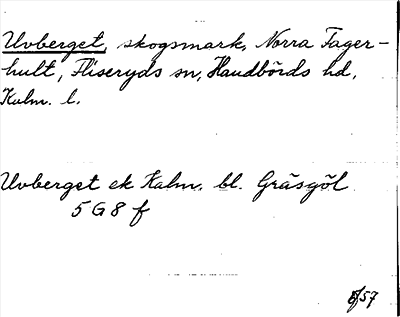 Uvberget, skogsmark, Norra Fager-
hult, Fliseryds sn, Handbörds hd,
Kalm. l.
Uvberget ek Kalm. bl. Gräsgöl
5 G 8 f
/57